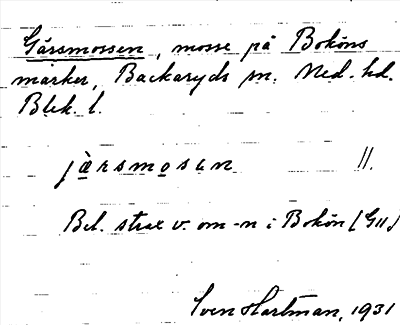 Gårsmossen, mosse på Boköns
marker, Backaryds sn. Med. hd.
Blek. l.
jàrsmosen ||.
Bel. strax v. om -n i Bokön [G11)
Sven Hartman, 1931